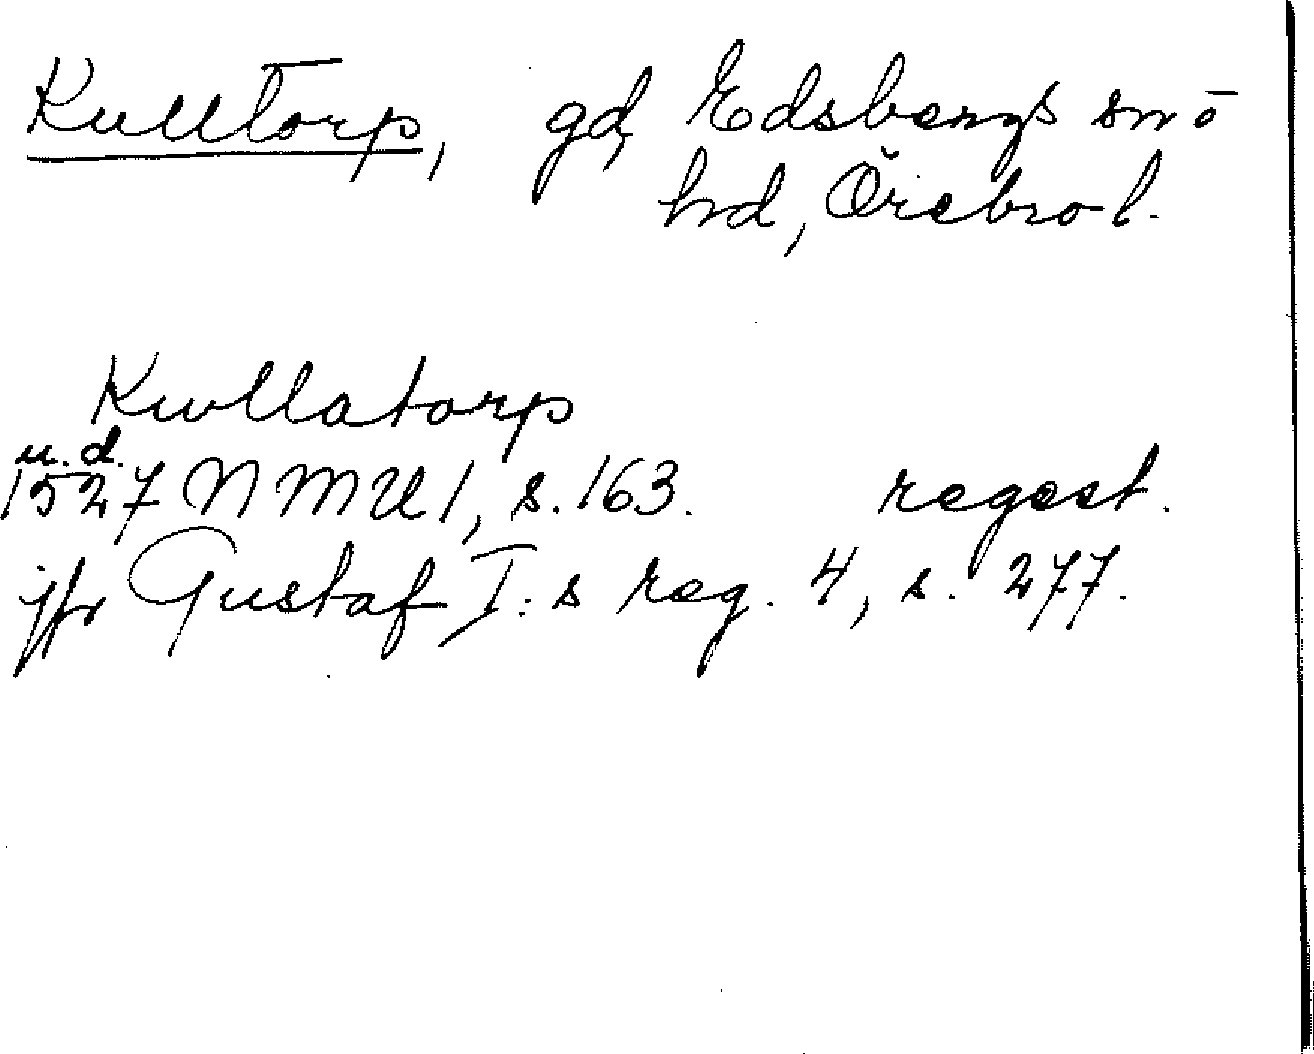 Kulltorp, gd, Edsbergs sn o
hd, Örebro l.
Kwllatorp
u. d.
1527 NMU 1, s. 163. regest.
jfr Gustaf I:s reg. 4, s. 277.